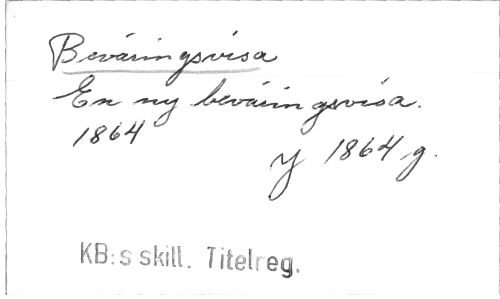 Beväringsvisa
En ny beväringsvisa.
1864
Y 1864 g.
KB:s skill. Titelreg.